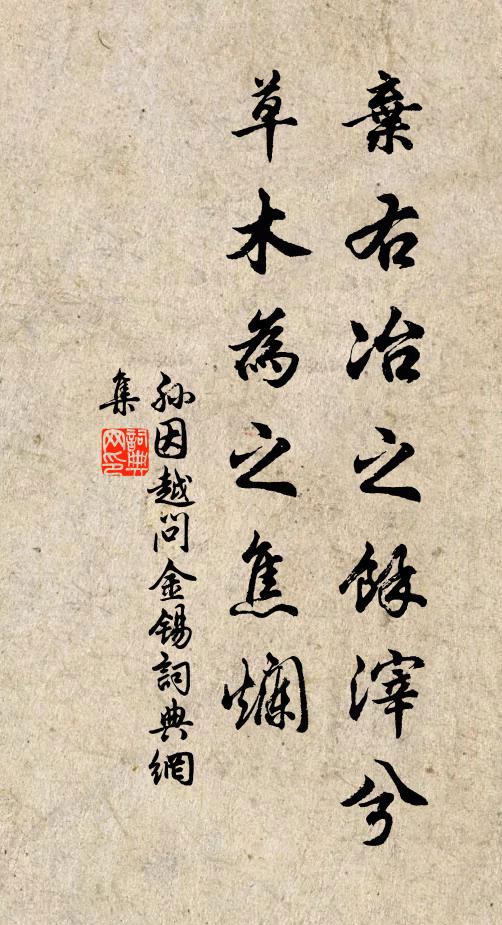 棄右冶之餘滓兮
草木為之焦爛
孫因越問金錫詞典網
集
詞典
网印